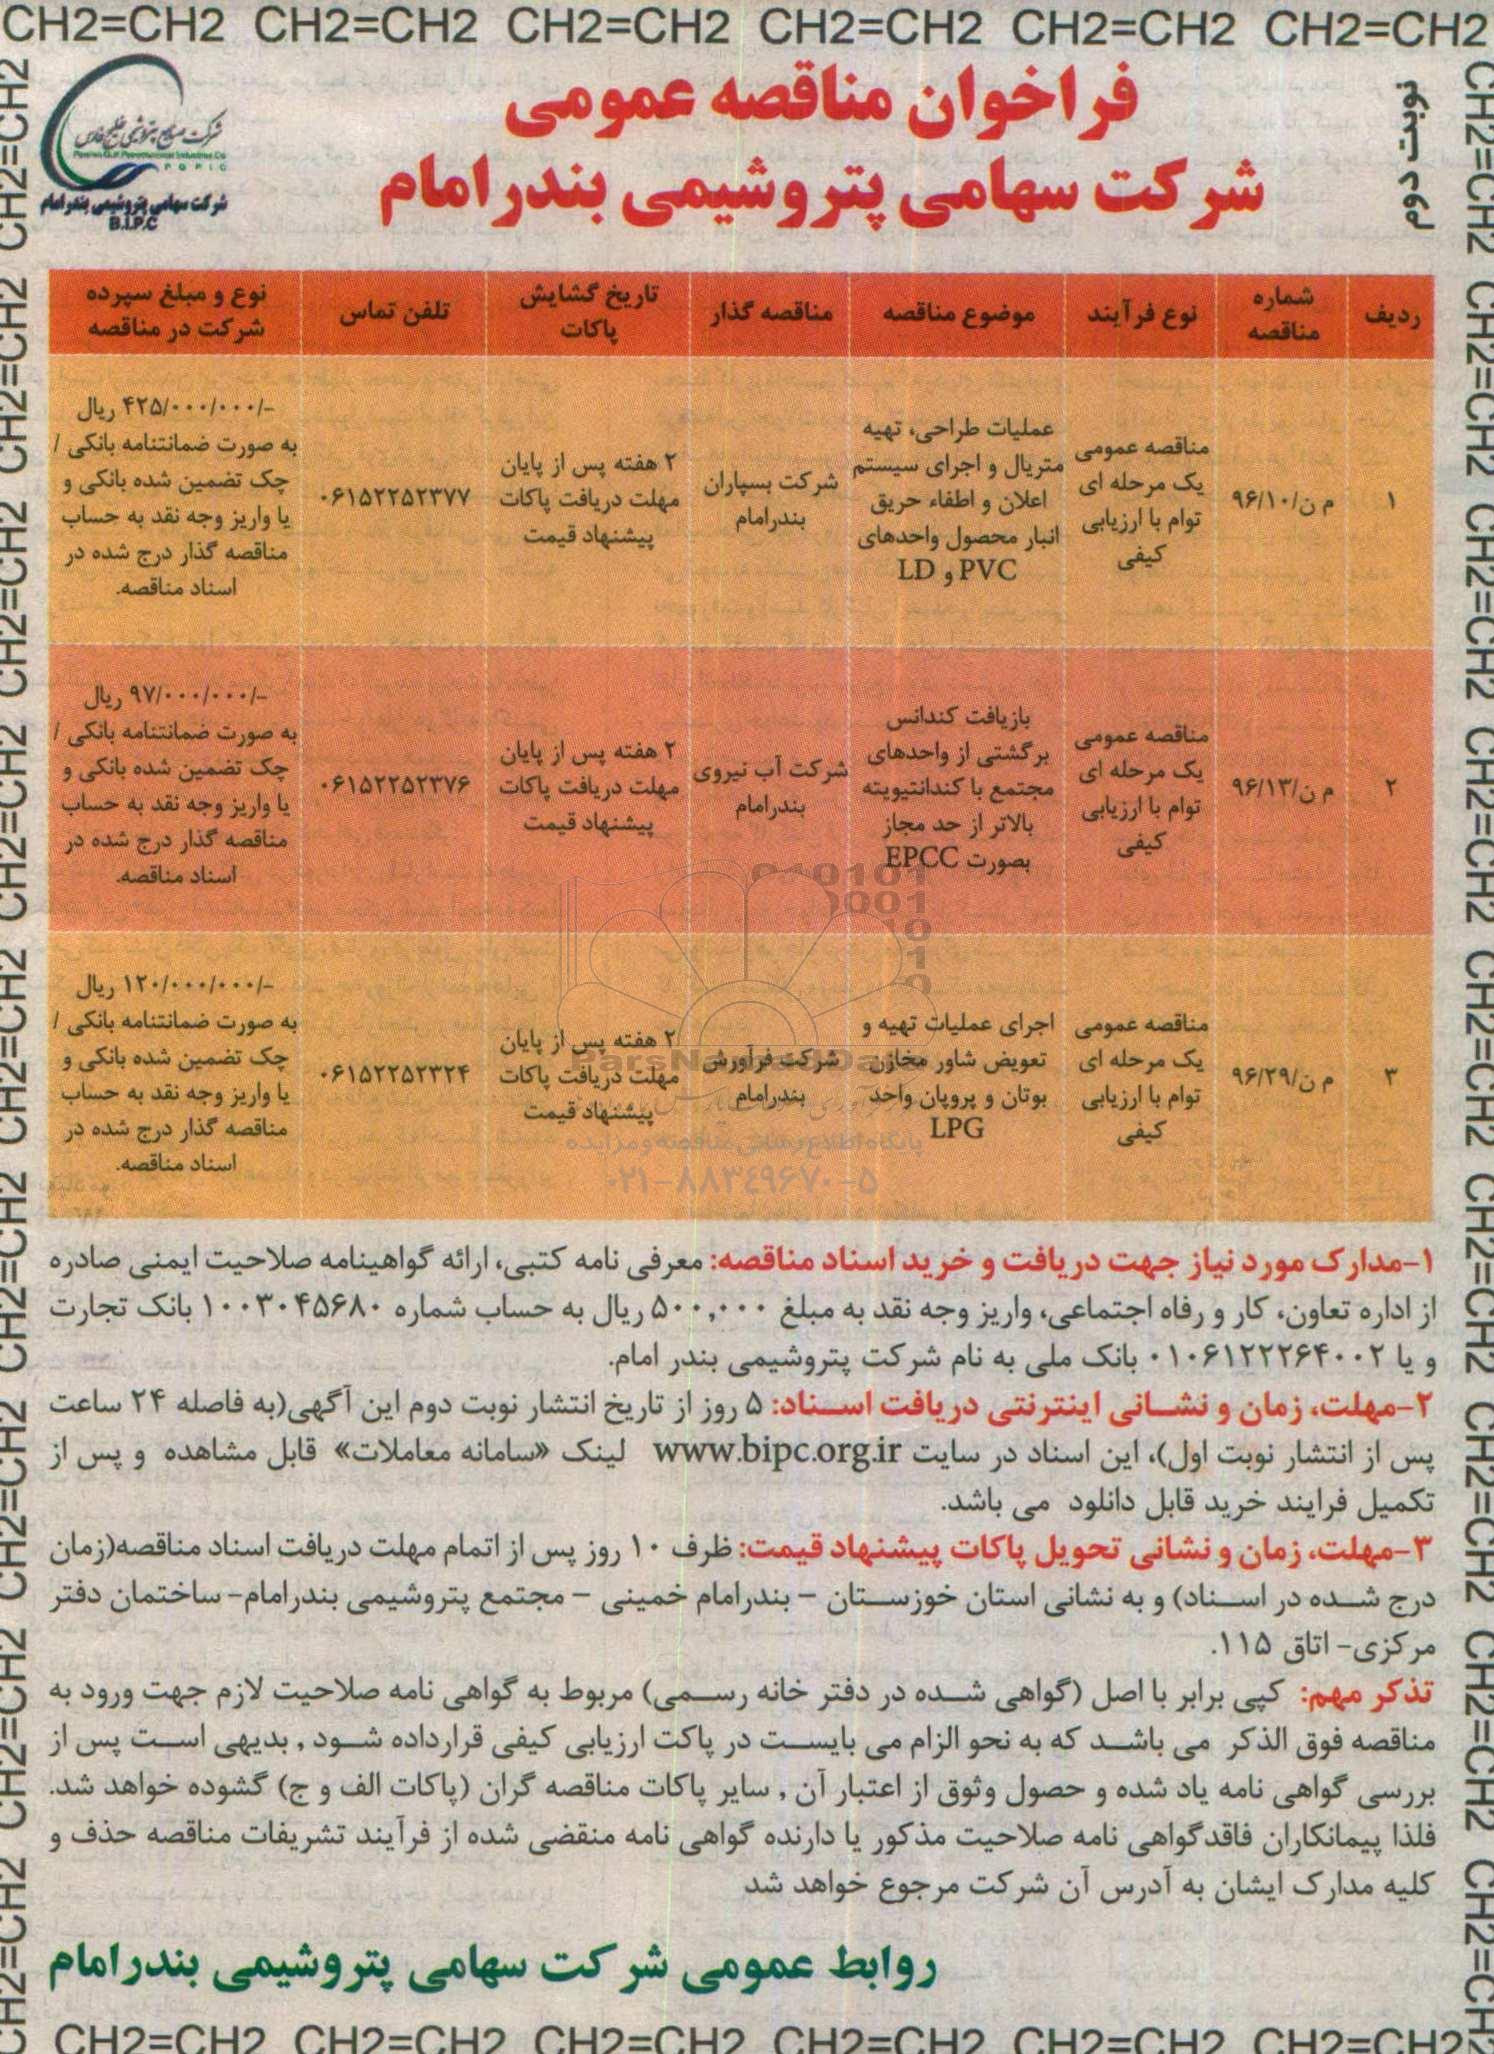 CH2=CH2 CH2=CH2 CH2=CH2 CH2=CH2 CH2=CH2 CH2=CH2
نوبت دوم
فراخوان مناقصه عمومی
شرکت سهامی پتروشیمی بندرامام
شرکت صنایع پتروشیمی خلیج فارس
Persian Gulf Petrochemical Industries Co
PGPIC
شرکت سهامی پتروشیمی بندرامام
B.I.P.C
ردیف
شماره
مناقصه
نوع فرآیند
موضوع مناقصه
مناقصه گذار
تاریخ گشایش
پاکات
تلفن تماس
نوع و مبلغ سپرده
شرکت در مناقصه
۱
م ن/۹۶/۱۰
مناقصه عمومی
یک مرحله ای
توام با ارزیابی
کیفی
عملیات طراحی، تهیه
متریال و اجرای سیستم
اعلان و اطفاء حریق
انبار محصول واحدهای
PVC و LD
شرکت بسپاران
بندرامام
۲ هفته پس از پایان
مهلت دریافت پاکات
پیشنهاد قیمت
۰۶۱۵۲۲۵۲۳۷۷
-/۴۲۵/۰۰۰/۰۰۰ ریال
به صورت ضمانتنامه بانکی /
چک تضمین شده بانکی و
یا واریز وجه نقد به حساب
مناقصه گذار درج شده در
اسناد مناقصه.
۲
م ن/۹۶/۱۳
مناقصه عمومی
یک مرحله ای
توام با ارزیابی
کیفی
بازیافت کندانس
برگشتی از واحدهای
مجتمع با کندانتیویته
بالاتر از حد مجاز
بصورت EPCC
شرکت آب نیروی
بندرامام
۲ هفته پس از پایان
مهلت دریافت پاکات
پیشنهاد قیمت
۰۶۱۵۲۲۵۲۳۷۶
-/۹۷/۰۰۰/۰۰۰ ریال
به صورت ضمانتنامه بانکی /
چک تضمین شده بانکی و
یا واریز وجه نقد به حساب
مناقصه گذار درج شده در
اسناد مناقصه.
۳
م ن/۹۶/۲۹
مناقصه عمومی
یک مرحله ای
توام با ارزیابی
کیفی
اجرای عملیات تهیه و
تعویض شاور مخازن
بوتان و پروپان واحد
LPG
شرکت فرآورش
بندرامام
۲ هفته پس از پایان
مهلت دریافت پاکات
پیشنهاد قیمت
۰۶۱۵۲۲۵۲۳۲۴
-/۱۲۰/۰۰۰/۰۰۰ ریال
به صورت ضمانتنامه بانکی /
چک تضمین شده بانکی و
یا واریز وجه نقد به حساب
مناقصه گذار درج شده در
اسناد مناقصه.
پایگاه اطلاع رسانی مناقصه و مزایده
۰۲۱-۸۸۳۴۹۶۷۰-۵
۱-مدارک مورد نیاز جهت دریافت و خرید اسناد مناقصه: معرفی نامه کتبی، ارائه گواهینامه صلاحیت ایمنی صادره
از اداره تعاون، کار و رفاه اجتماعی، واریز وجه نقد به مبلغ ۵۰۰,۰۰۰ ریال به حساب شماره ۱۰۰۳۰۴۵۶۸۰ بانک تجارت
و یا ۰۱۰۶۱۲۲۲۶۴۰۰۲ بانک ملی به نام شرکت پتروشیمی بندر امام.
۲-مهلت، زمان و نشانی اینترنتی دریافت اسناد: ۵ روز از تاریخ انتشار نوبت دوم این آگهی(به فاصله ۲۴ ساعت
پس از انتشار نوبت اول)، این اسناد در سایت www.bipc.org.ir لینک «سامانه معاملات» قابل مشاهده و پس از
تکمیل فرایند خرید قابل دانلود می باشد.
۳-مهلت، زمان و نشانی تحویل پاکات پیشنهاد قیمت: ظرف ۱۰ روز پس از اتمام مهلت دریافت اسناد مناقصه(زمان
درج شده در اسناد) و به نشانی استان خوزستان – بندرامام خمینی – مجتمع پتروشیمی بندرامام- ساختمان دفتر
مرکزی- اتاق ۱۱۵.
تذکر مهم: کپی برابر با اصل (گواهی شده در دفتر خانه رسمی) مربوط به گواهی نامه صلاحیت لازم جهت ورود به
مناقصه فوق الذکر می باشد که به نحو الزام می بایست در پاکت ارزیابی کیفی قرارداده شود , بدیهی است پس از
بررسی گواهی نامه یاد شده و حصول وثوق از اعتبار آن , سایر پاکات مناقصه گران (پاکات الف و ج) گشوده خواهد شد.
فلذا پیمانکاران فاقدگواهی نامه صلاحیت مذکور یا دارنده گواهی نامه منقضی شده از فرآیند تشریفات مناقصه حذف و
کلیه مدارک ایشان به آدرس آن شرکت مرجوع خواهد شد
روابط عمومی شرکت سهامی پتروشیمی بندرامام
CH2=CH2 CH2=CH2 CH2=CH2 CH2=CH2 CH2=CH2 CH2=CH2